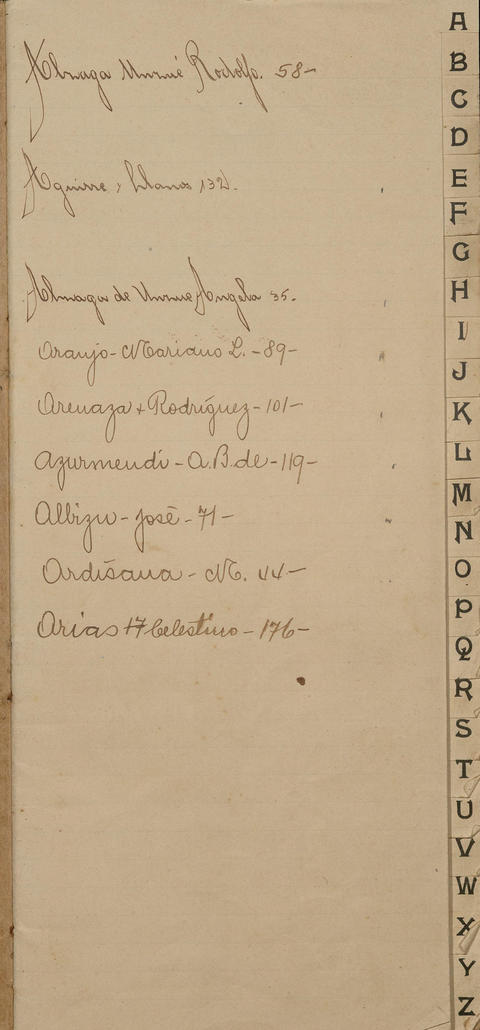 Almaga Unrué Rodolfo. 58-
Aguirre y Llanos 132.
Almaga de Unrue Angela 35.
Araujo - Mariano L. - 89-
Arenaza + Rodríguez - 101-
Azurmendi - A.B. de - 119-
Albizu - José - 71-
Ardisana - M. 44-
Arias H Celestino - 176-
A
B
C
D
E
F
G
H
I
J
K
L
M
N
O
P
Q
R
S
T
U
V
W
X
Y
Z